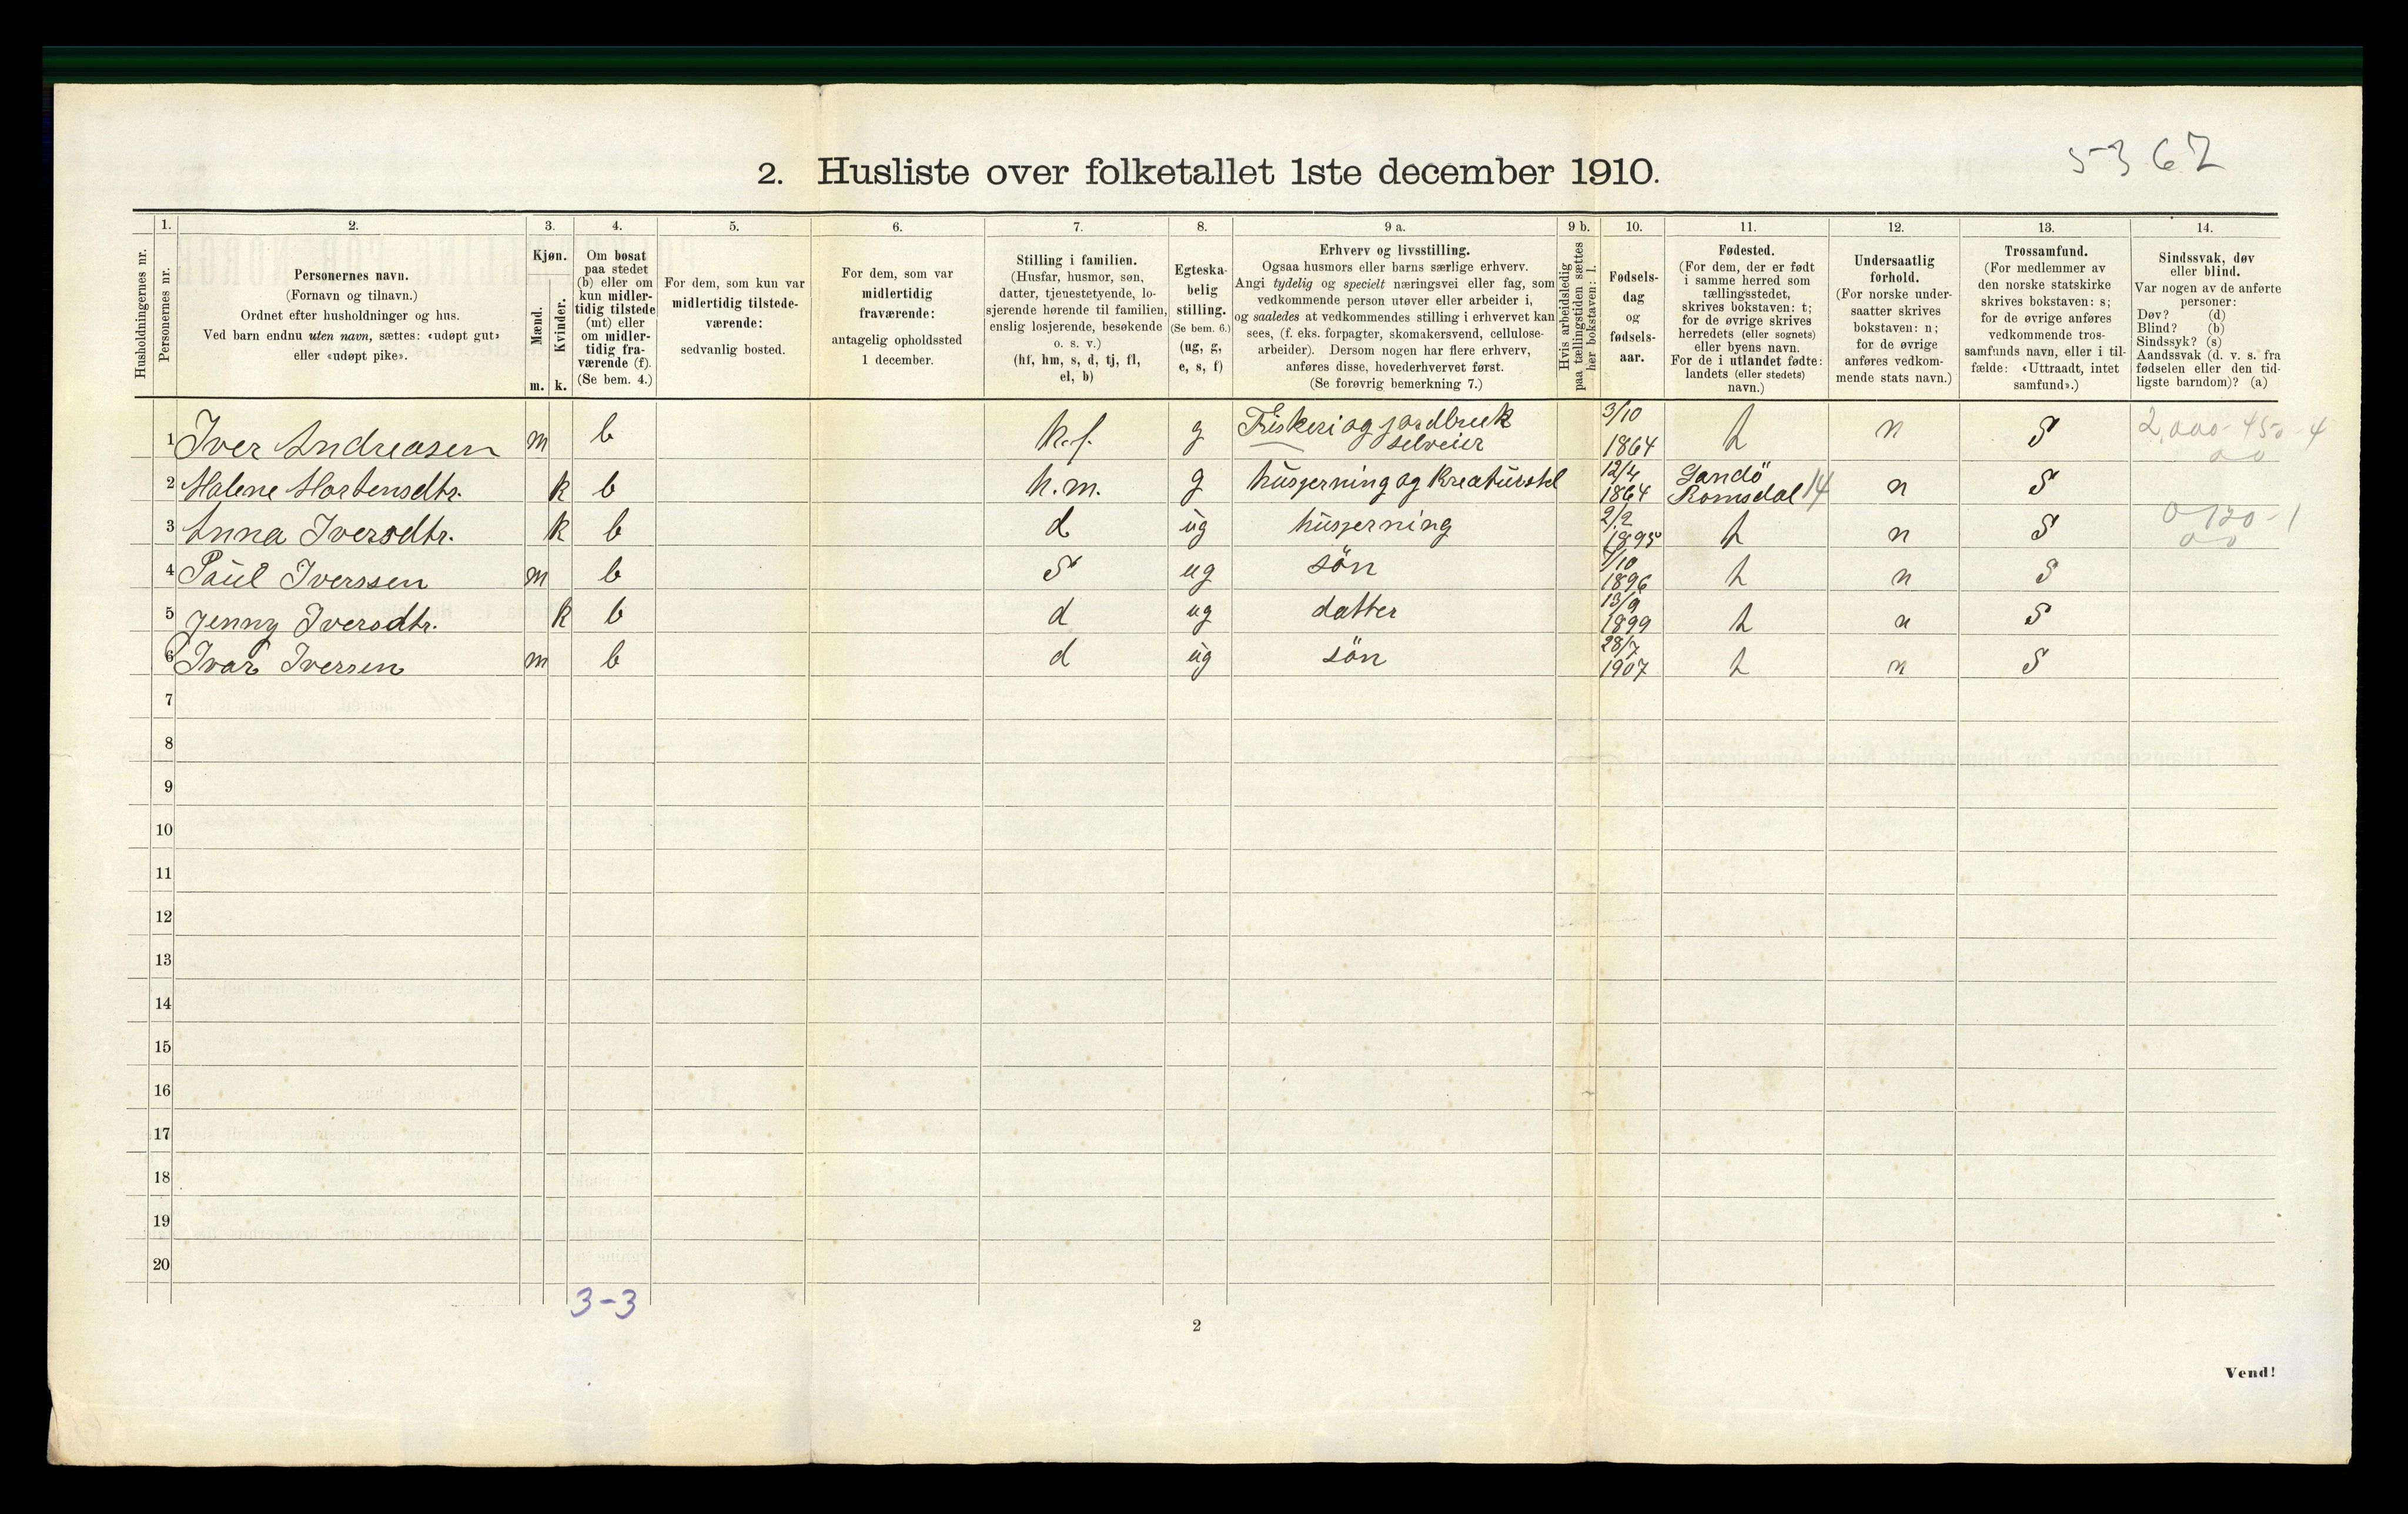 5362
2. Husliste over folketallet 1ste december 1910.
Husholdningernes nr.
1.
Personernes nr.
2.
Personernes navn.
(Fornavn og tilnavn.)
Ordnet efter husholdninger og hus.
Ved barn endnu uten navn, sættes: «udøpt gut»
eller «udøpt pike».
3.
Kjøn.
Mænd.
Kvinder.
m. k.
4.
Om bosat
paa stedet
(b) eller om
kun midler-
tidig tilstede
(mt) eller
om midler-
tidig fra-
værende (f).
(Se bem. 4.)
5.
For dem, som kun var
midlertidig tilstede-
værende:
sedvanlig bosted.
6.
For dem, som var
midlertidig
fraværende:
antagelig opholdssted
1 december.
7.
Stilling i familien.
(Husfar, husmor, søn,
datter, tjenestetyende, lo-
sjerende hørende til familien,
enslig losjerende, besøkende
o. s. v.)
(hf, hm, s, d, tj, fl,
el, b)
8.
Egteska-
belig
stilling.
(Se bem. 6.)
(ug, g,
e, s, f)
9 a.
Erhverv og livsstilling.
Ogsaa husmors eller barns særlige erhverv.
Angi tydelig og specielt næringsvei eller fag, som
vedkommende person utøver eller arbeider i,
og saaledes at vedkommendes stilling i erhvervet kan
sees, (f. eks. forpagter, skomakersvend, cellulose-
arbeider). Dersom nogen har flere erhverv,
anføres disse, hovederhvervet først.
(Se forøvrig bemerkning 7.)
9 b.
Hvis arbeidsledig
paa tællingstiden sættes
her bokstaven: l.
10.
Fødsels-
dag
og
fødsels-
aar.
11.
Fødested.
(For dem, der er født
i samme herred som
tællingsstedet,
skrives bokstaven: t;
for de øvrige skrives
herredets (eller sognets)
eller byens navn.
For de i utlandet fødte:
landets (eller stedets)
navn.)
12.
Undersaatlig
forhold.
(For norske under-
saatter skrives
bokstaven: n;
for de øvrige
anføres vedkom-
mende stats navn.)
13.
Trossamfund.
(For medlemmer av
den norske statskirke
skrives bokstaven: s;
for de øvrige anføres
vedkommende tros-
samfunds navn, eller i til-
fælde: «Uttraadt, intet
samfund».)
14.
Sindssvak, døv
eller blind.
Var nogen av de anførte
personer:
Døv? (d)
Blind? (b)
Sindssyk? (s)
Aandssvak (d. v. s. fra
fødselen eller den tid-
ligste barndom)? (a)
1 Iver Andreasen m b h.f. g Fiskeri og jordbruk selveier 3/10 1864 t n S 2,000-450-4
2 Malene Mortensdtr. k b h.m. g husgerning og kreaturstel 12/4 1864 Sandö Romsdal 14 n S
3 Anna Iversdtr. k b d ug husgerning 2/2 1895 t n S 0-120-1
4 Paul Iverssen m b S ug sön 1/10 1896 t n S
5 Jenny Iversdtr. k b d ug datter 13/9 1899 t n S
6 Ivar Iversen m b d ug sön 28/7 1907 t n S
7
8
9
10
11
12
13
14
15
16
17
18
19
20
3-3
2
Vend!